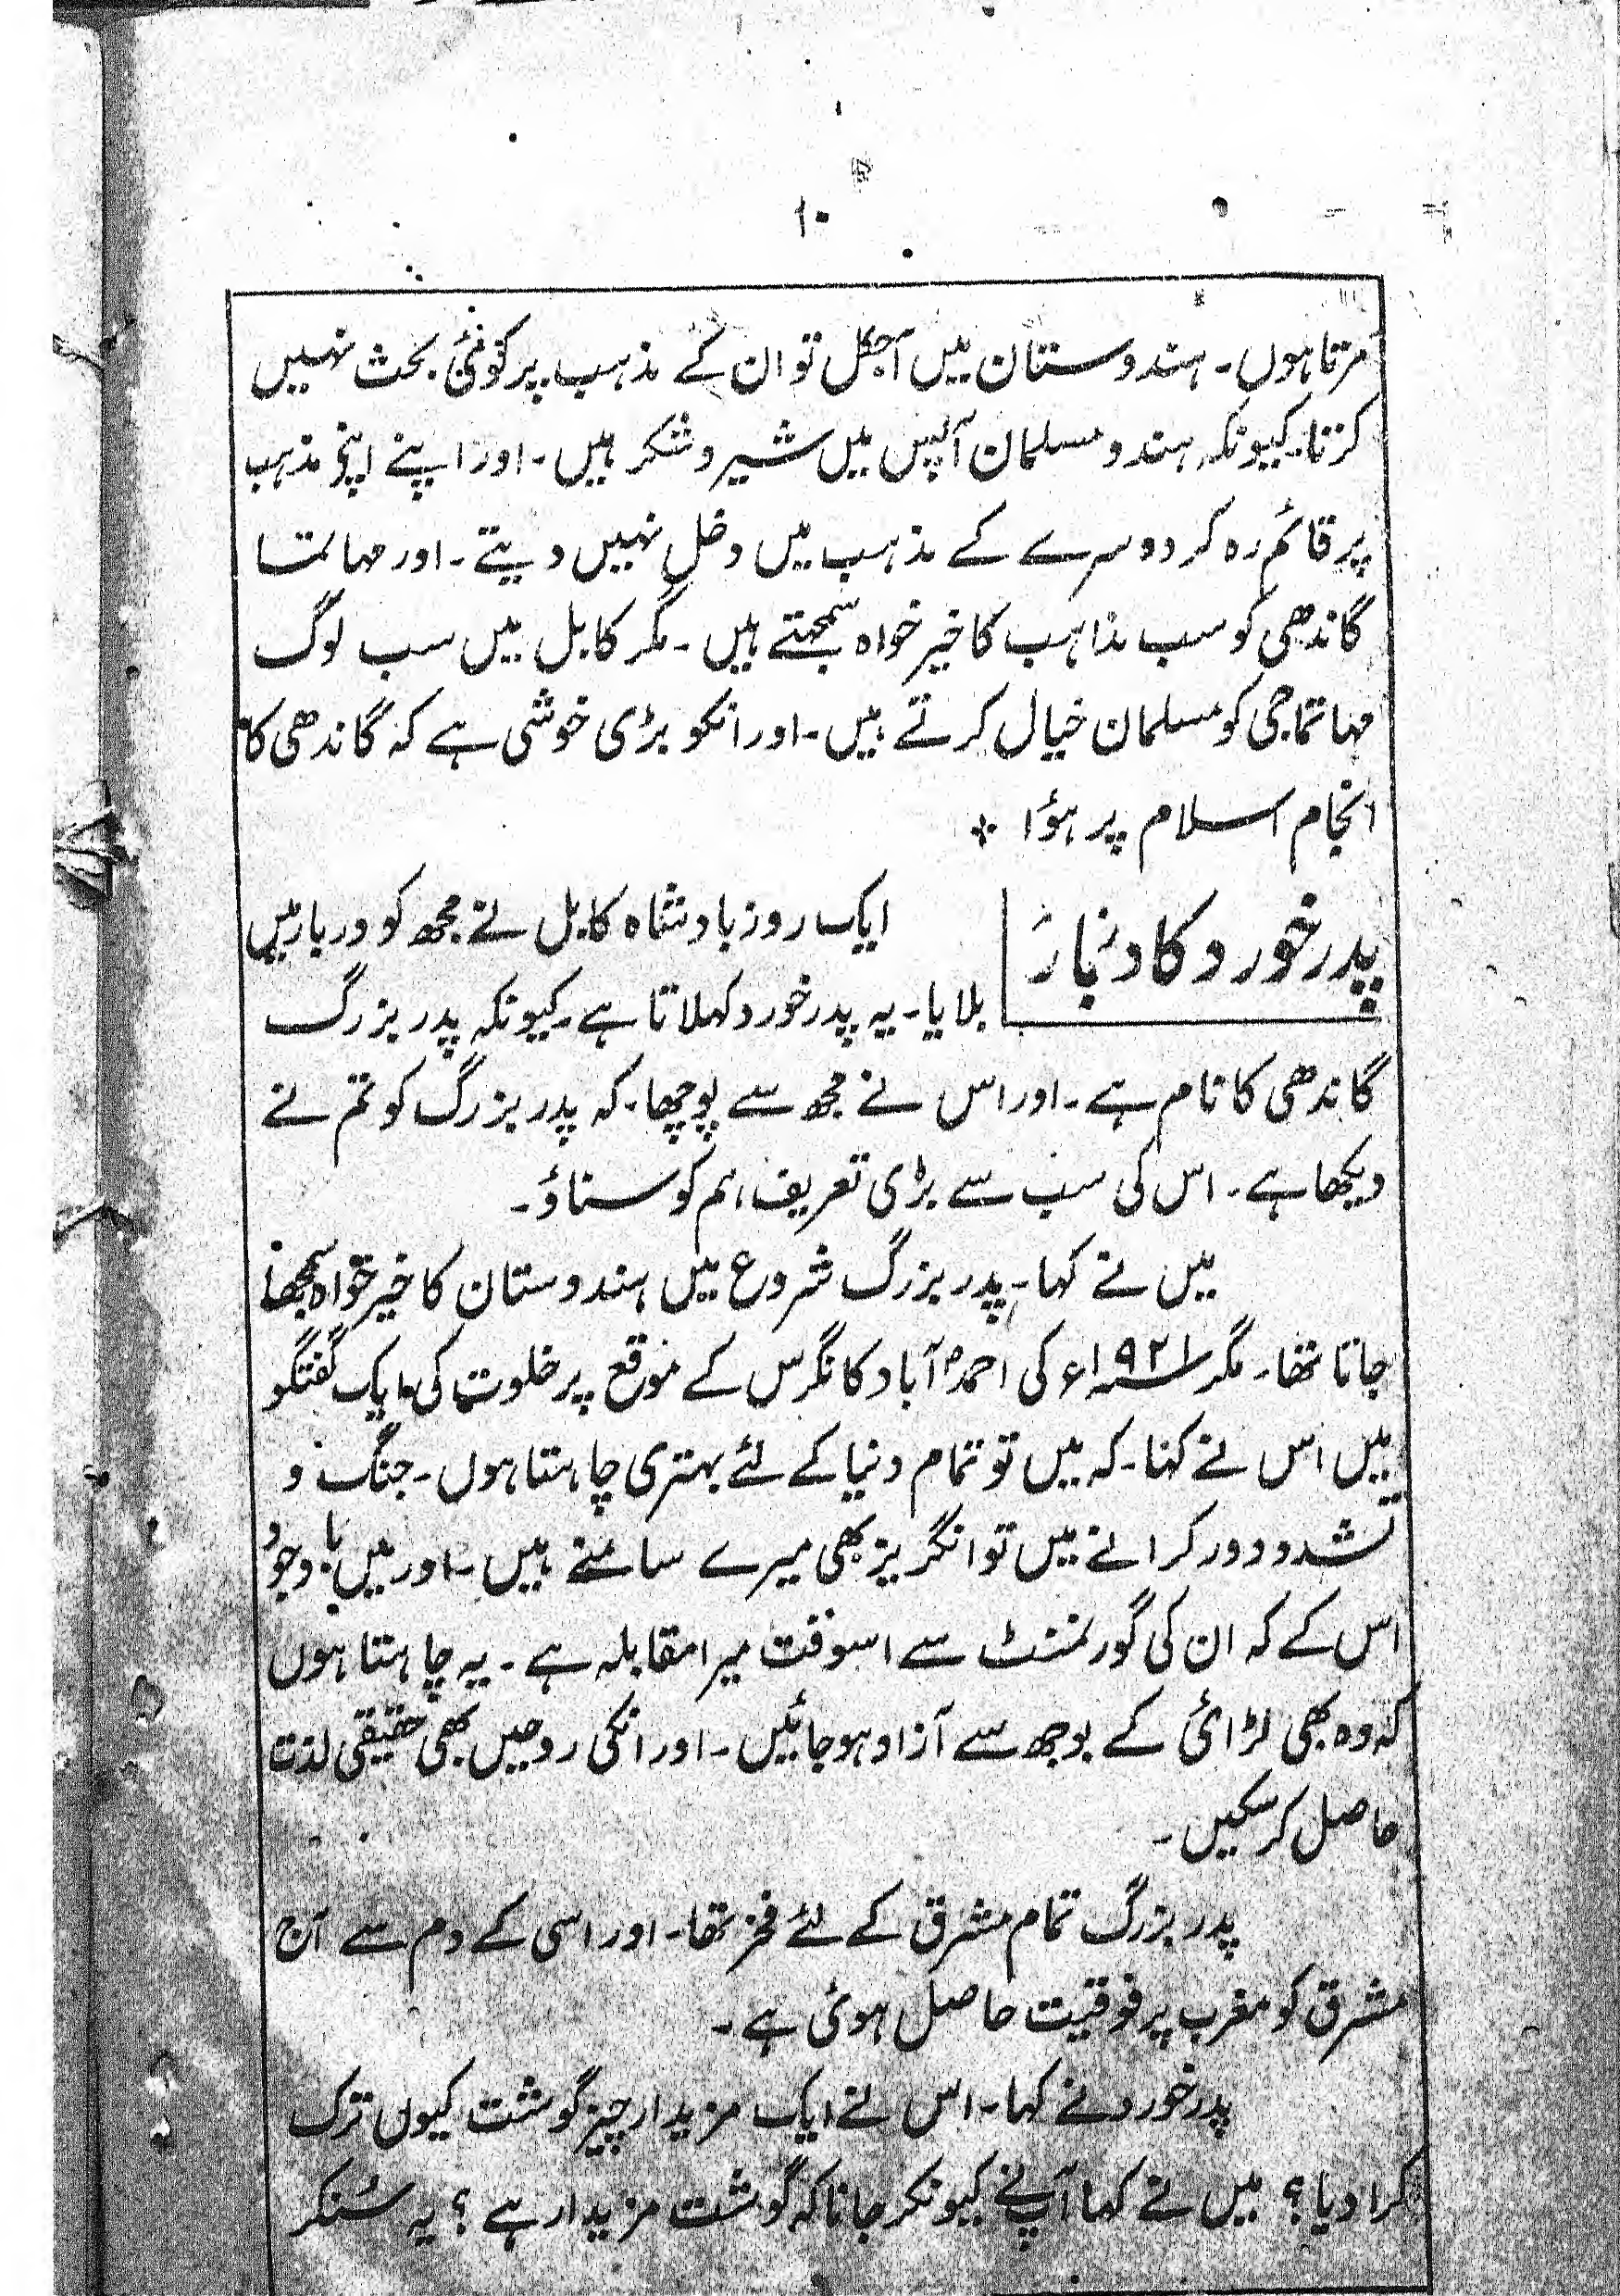 ۱۰
مرتا ہوں۔ ہندوستان میں آجکل تو ان کے مذہب پر کوئی بحث نہیں
کرتا۔ کیونکہ ہندو مسلمان آپس میں شیر و شکر ہیں۔ اور اپنے اپنے مذہب
پر قائم رہ کر دوسرے کے مذہب میں دخل نہیں دیتے۔ اور مہاتما
گاندھی کو سب مذاہب کا خیر خواہ سمجھتے ہیں۔ مگر کابل میں سب لوگ
مہاتما جی کو مسلمان خیال کرتے ہیں۔ اور انکو بڑی خوشی ہے کہ گاندھی کا
انجام اسلام پر ہؤا ۔
پدر خورد کا دربار
ایک روز بادشاہ کابل نے مجھ کو دربار میں
بلایا۔ یہ پدر خورد کہلاتا ہے۔ کیونکہ پدر بزرگ
گاندھی کا نام ہے۔ اور اس نے مجھ سے پوچھا۔ کہ پدر بزرگ کو تم نے
دیکھا ہے۔ اس کی سب سے بڑی تعریف ہم کو سناؤ۔
میں نے کہا۔ پدر بزرگ شروع میں ہندوستان کا خیر خواہ سمجھا
جاتا تھا۔ مگر ۱۹۲۱ء کی احمد آباد کانگرس کے موقع پر خلوت کی ایک گفتگو
میں اس نے کہا۔ کہ میں تو تمام دنیا کے لئے بہتری چاہتا ہوں۔ جنگ و
تشدد دور کرانے میں تو انگریز بھی میرے سامنے ہیں۔ اور میں باوجود
اس کے کہ ان کی گورنمنٹ سے اسوقت میرا مقابلہ ہے۔ یہ چاہتا ہوں
کہ وہ بھی لڑائی کے بوجھ سے آزاد ہو جائیں۔ اور انکی روحیں بھی حقیقی لذت
حاصل کر سکیں۔
پدر بزرگ تمام مشرق کے لئے فخر تھا۔ اور اسی کے دم سے آج
مشرق کو مغرب پر فوقیت حاصل ہوئی ہے۔
پدر خورد نے کہا۔ اس نے ایک مزیدار چیز گوشت کیوں ترک
کرا دیا؟ میں نے کہا آپنے کیونکر جانا کہ گوشت مزیدار ہے؟ یہ سُنکر